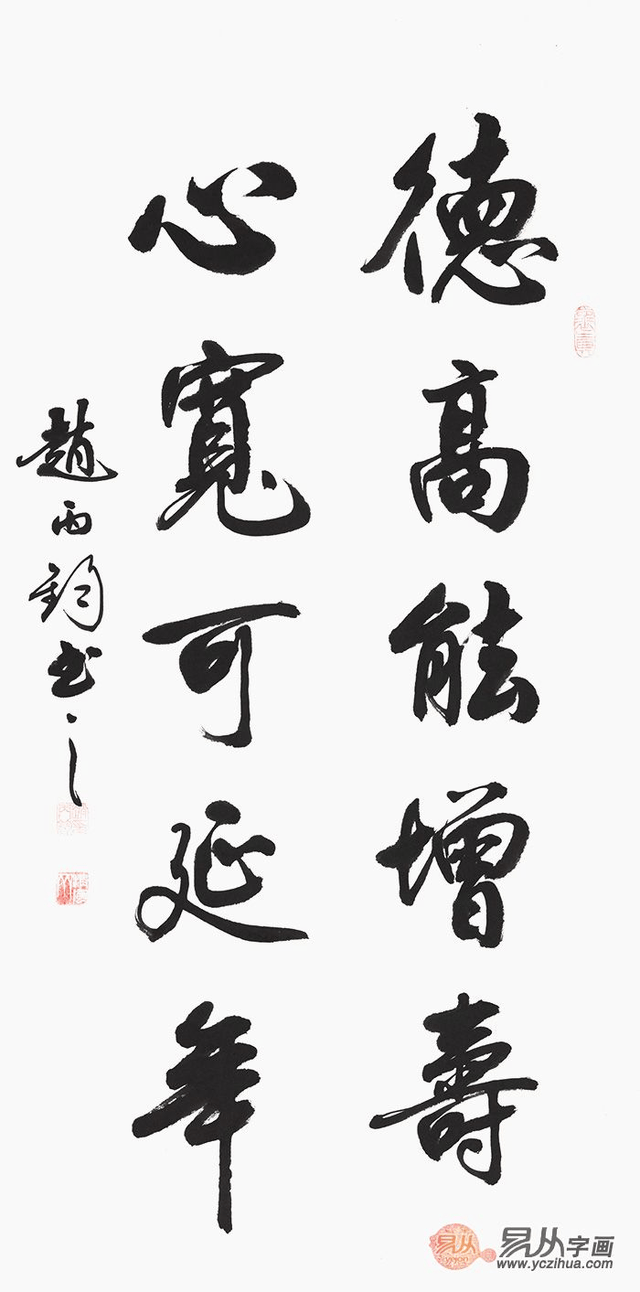 德高能增壽
心寬可延年
趙雨鈞書之
易从字画
www.yczihua.com